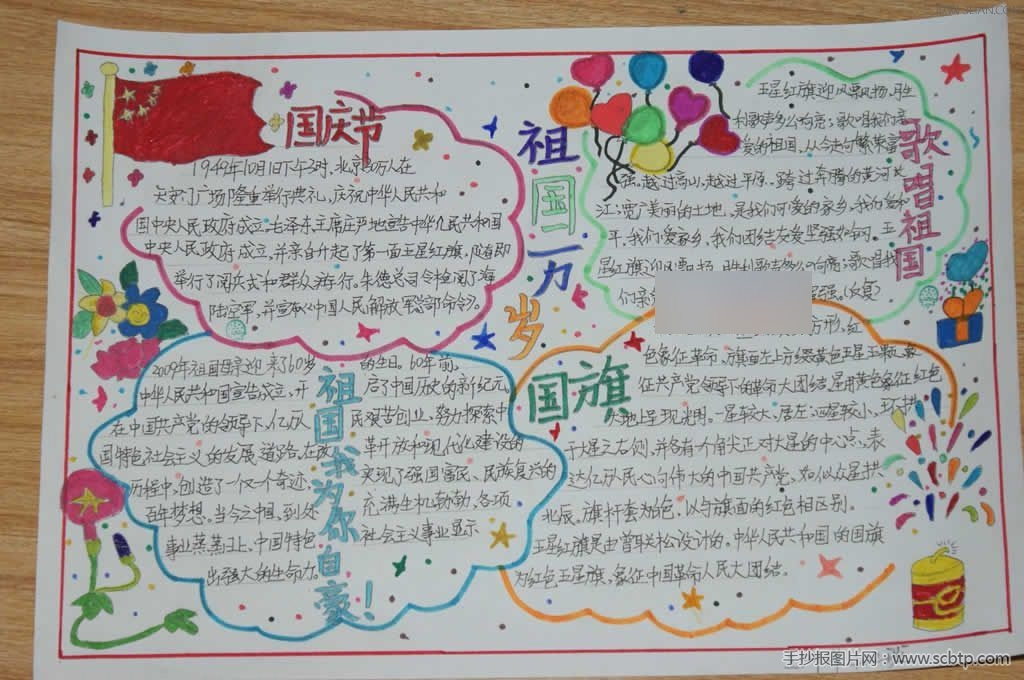 国庆节
1949年10月1日下午3时,北京30万人在
天安门广场隆重举行典礼,庆祝中华人民共和
国中央人民政府成立。毛泽东主席庄严地宣告中华人民共和国
中央人民政府成立,并亲自升起了第一面五星红旗,随即
举行了阅兵式和群众游行。朱德总司令检阅了海
陆空军,并宣布《中国人民解放军总部命令》。
祖国万岁
歌唱祖国
五星红旗迎风飘扬,胜
利歌声多么响亮;歌唱我们亲
爱的祖国,从今走向繁荣富
强。越过高山,越过平原,跨过奔腾的黄河长
江;宽广美丽的土地,是我们可爱的家乡,我们爱和
平,我们爱家乡,我们团结友爱坚强如钢。五
星红旗迎风飘扬,胜利歌声多么响亮;歌唱我
们亲
强。(反复)
祖国我为你自豪!
2009年祖国母亲迎来了60岁的生日。60年前,
中华人民共和国宣告成立,开启了中国历史的新纪元。
在中国共产党的领导下,亿万民艰苦创业,努力探索中
国特色社会主义的发展道路,在改革开放和现代化建设的
历程中,创造了一个又一个奇迹,实现了强国富民、民族复兴的
百年梦想。当今之中国,到处充满生机勃勃,各项
事业蒸蒸日上,中国特色社会主义事业显示
出强大的生命力。
国旗
方形,红
色象征革命,旗面左上方缀黄色五星五颗,象
征共产党领导下的革命大团结,星用黄色象征红色
大地上呈现光明。一星较大,居左;四星较小,环拱
于大星之右侧,并各有一个角尖正对大星的中心点,表
达亿万人民心向伟大的中国共产党,如似众星拱
北辰。旗杆套为白色,以与旗面的红色相区别。
五星红旗是由曾联松设计的。中华人民共和国的国旗
为红色五星旗,象征中国革命人民大团结。
手抄报图片网:www.scbtp.com